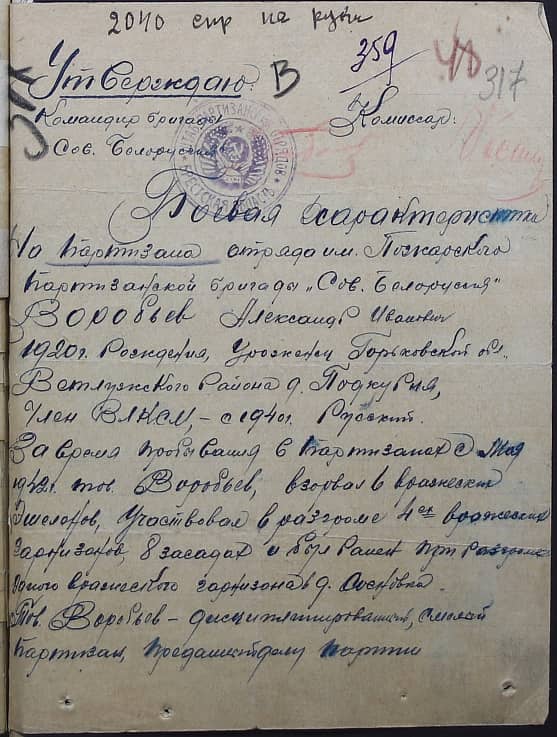 2040 стр на руки
359
317
Утверждаю: В
Командир бригады Комиссар:
Сов. Белоруссия
ПАРТИЗАНСКИХ ОТРЯДОВ
БРЕСТСКАЯ ОБЛАСТЬ
Боевая характеристика
На партизана отряда им. Пожарского
партизанской бригады „Сов. Белоруссия"
Воробьев Александр Иванович
1920г. рождения, уроженец Горьковской обл.
Ветлужского района д.
Член ВЛКСМ, - с 1940г. Русский.
За время пребывания в партизанах с мая
1942г. тов. Воробьев, взорвал 6 вражеских
эшелонов, участвовал в разгроме 4ех вражеских
гарнизонов, 8 засадах и был ранен при разгроме
одного вражеского гарнизона в д. Сосновка.
Тов. Воробьев - дисциплинированный, смелый
партизан, преданный делу партии